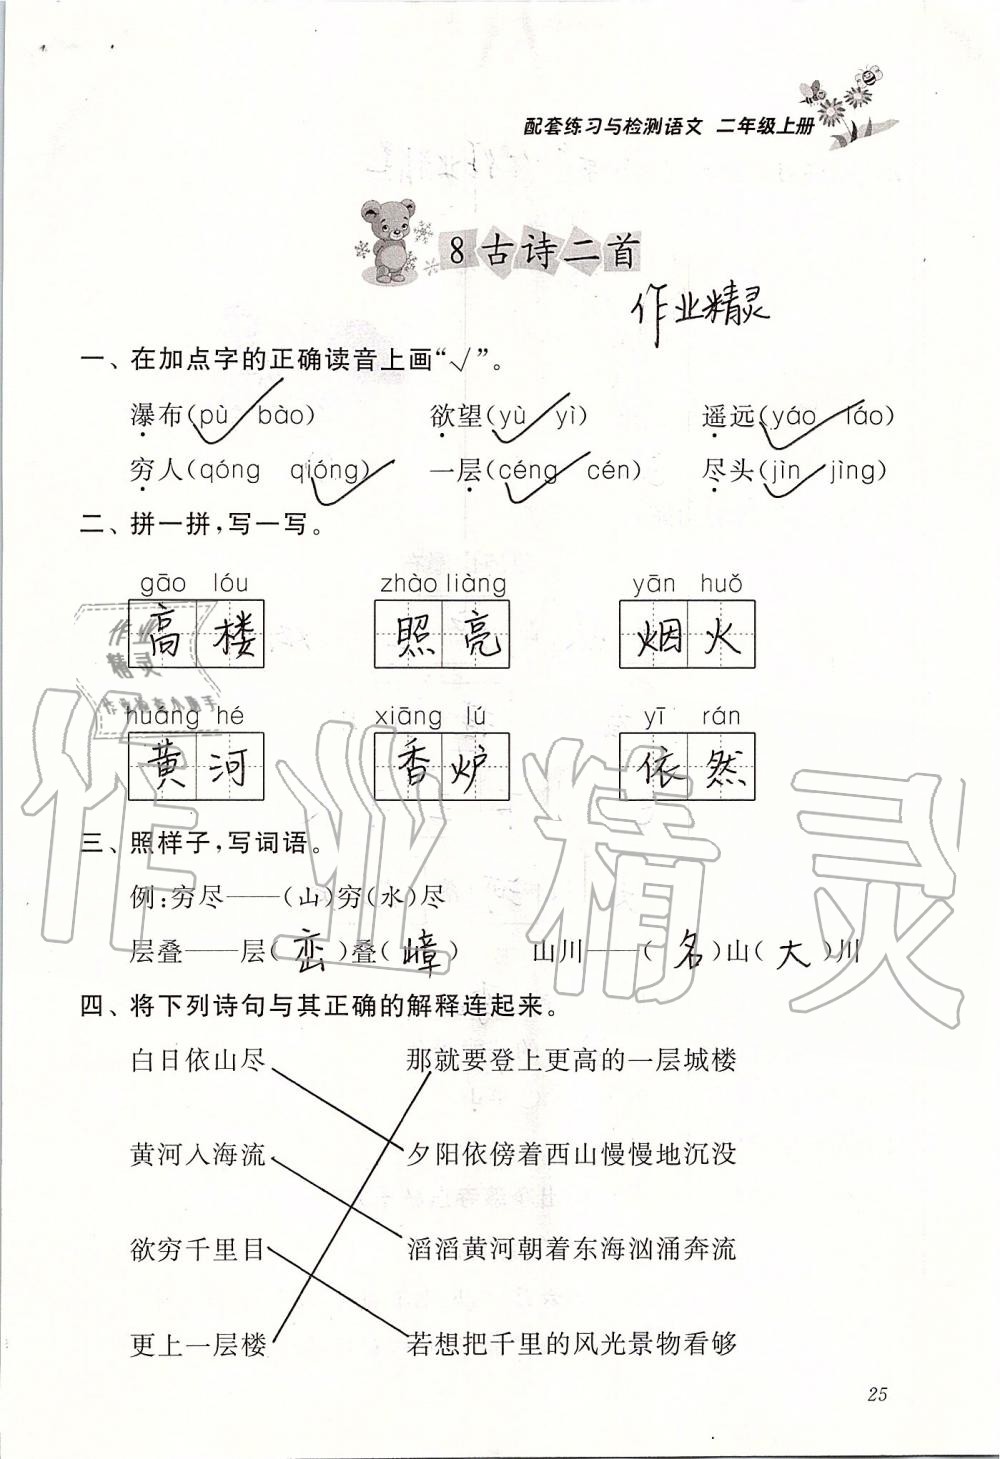 配套练习与检测语文 二年级上册
8 古诗二首
作业精灵
一、在加点字的正确读音上画“√”。
瀑布(pù bào) 欲望(yù yì) 遥远(yáo láo)
穷人(qóng qióng) 一层(céng cén) 尽头(jìn jìng)
二、拼一拼,写一写。
gāo lóu zhào liàng yān huǒ
高楼 照亮 烟火
huáng hé xiāng lú yī rán
黄河 香炉 依然
三、照样子,写词语。
例:穷尽——(山)穷(水)尽
层叠——层(峦)叠(嶂) 山川——(名)山(大)川
四、将下列诗句与其正确的解释连起来。
白日依山尽 那就要登上更高的一层城楼
黄河入海流 夕阳依傍着西山慢慢地沉没
欲穷千里目 滔滔黄河朝着东海汹涌奔流
更上一层楼 若想把千里的风光景物看够
25
作业精灵
作业
精灵